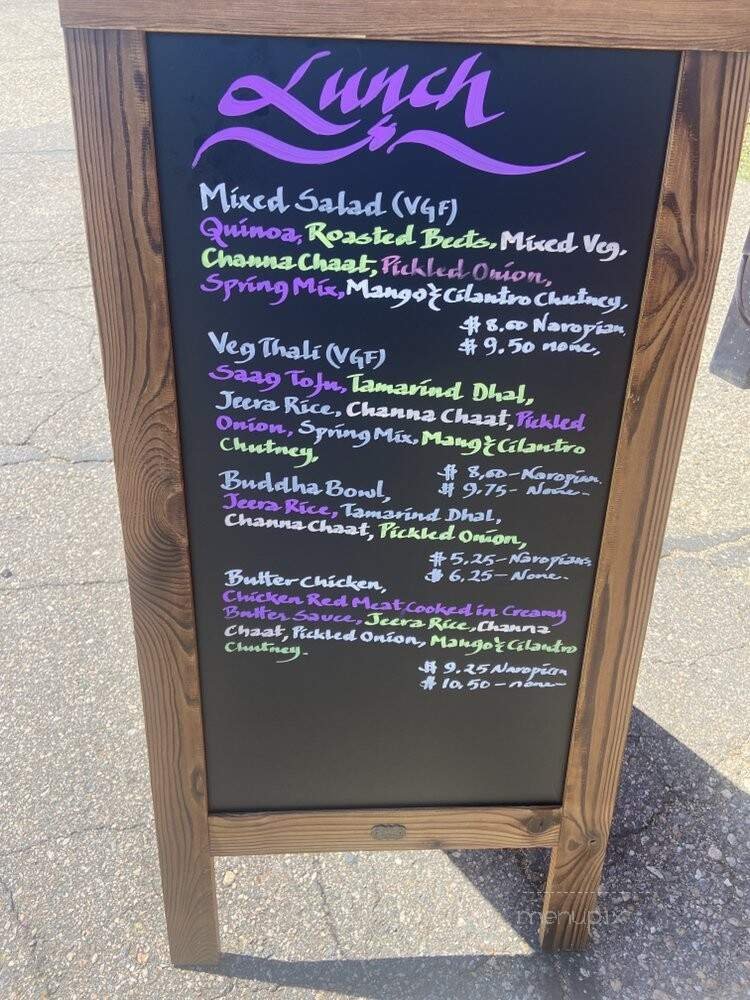 Lunch
Mixed Salad (VGF)
Quinoa, Roasted Beets, Mixed Veg,
Channa Chaat, Pickled Onion,
Spring Mix, Mango & Cilantro Chutney,
$ 8.60 Naropian,
$ 9.50 none,
Veg Thali (VGF)
Saag Tofu, Tamarind Dhal,
Jeera Rice, Channa Chaat, Pickled
Onion, Spring Mix, Mango & Cilantro
Chutney,
$ 8,60 - Naropian.
$ 9.75 - None -
Buddha Bowl,
Jeera Rice, Tamarind Dhal,
Channa Chaat, Pickled Onion,
$ 5,25 - Naropians
$ 6,25 - None.
Butter Chicken,
Chicken Red Meat Cooked in Creamy
Butter Sauce, Jeera Rice, Channa
Chaat, Pickled Onion, Mango & Cilantro
Chutney.
$ 9.25 Naropian
$ 10,50 - none -
menupix